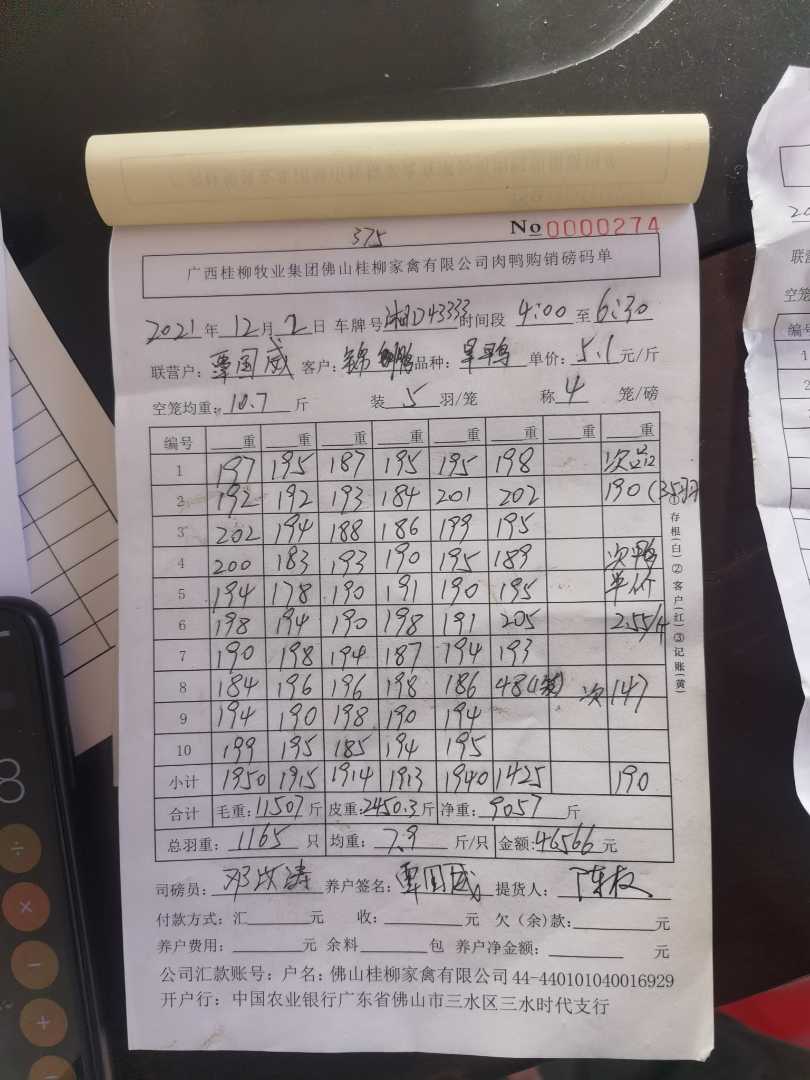 375
No 0000274
广西桂柳牧业集团佛山桂柳家禽有限公司肉鸭购销磅码单
2021年12月2日 车牌号湘D43333时间段 4:00 至 6:30
联营户:覃国威 客户:锦鹏 品种: 单价:5.1元/斤
空笼均重:10.7斤 装5羽/笼 称4笼/磅
编号 重 重 重 重 重 重 重 重
1 197 195 187 195 195 198 次品
2 192 192 193 184 201 202 190(35羽
3 202 194 188 186 199 195
4 200 183 193 190 195 189 次鸭
5 194 178 190 191 190 195 单价
6 198 194 190 198 191 205 2.55/斤
7 190 198 194 187 194 193
8 184 196 196 198 186 48(1笼) 次147
9 194 190 198 190 194
10 199 195 185 194 195
小计 1950 1915 1914 1913 1940 1425 190
合计 毛重:11507斤 皮重:2450.3斤 净重:9057斤
总羽重:1165只 均重:7.9斤/只 金额:46566元
司磅员:邓 涛 养户签名:覃国威 提货人:陈权
付款方式:汇 元 收: 元 欠(余)款: 元
养户费用: 元 余料 包 养户净金额: 元
公司汇款账号:户名:佛山桂柳家禽有限公司 44-440101040016929
开户行:中国农业银行广东省佛山市三水区三水时代支行
①存根(白)②客户(红)③记账(黄)
20
联营
空笼
编号
1
2
8
÷
×
−
+
=